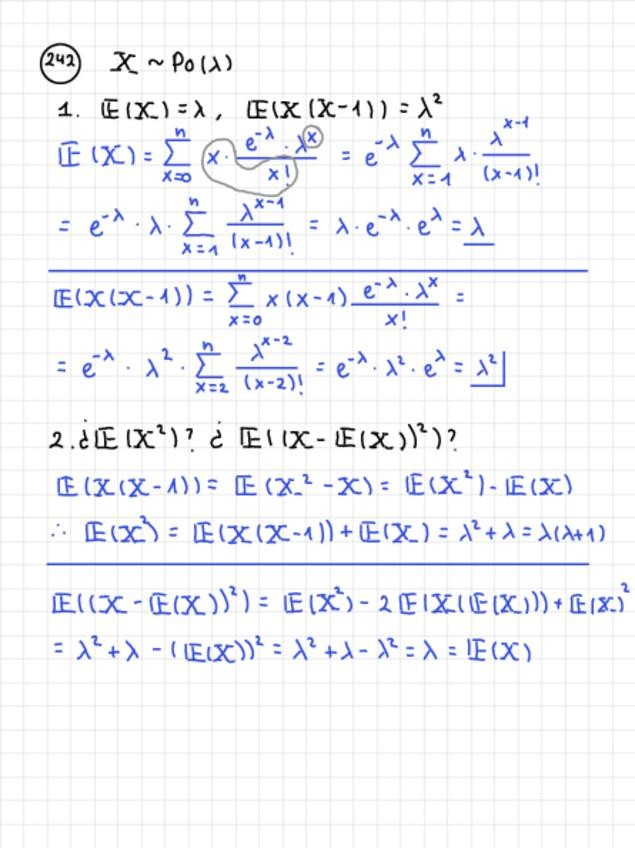 242 X ~ Po(λ)
1. E(X) = λ, E(X(X-1)) = λ²
E(X) = Σ_{x=0}^{n} x · (e^{-λ} · λ^x)/x! = e^{-λ} Σ_{x=1}^{n} λ · λ^{x-1}/(x-1)!
= e^{-λ} · λ · Σ_{x=1}^{n} λ^{x-1}/(x-1)! = λ · e^{-λ} · e^{λ} = λ
E(X(X-1)) = Σ_{x=0}^{n} x(x-1) (e^{-λ} · λ^x)/x! =
= e^{-λ} · λ² · Σ_{x=2}^{n} λ^{x-2}/(x-2)! = e^{-λ} · λ² · e^{λ} = λ²
2. ¿E(X²)? ¿ E((X - E(X))²)?
E(X(X-1)) = E(X² - X) = E(X²) - E(X)
∴ E(X²) = E(X(X-1)) + E(X) = λ² + λ = λ(λ+1)
E((X - E(X))²) = E(X²) - 2 E(X(E(X))) + E(X)²
= λ² + λ - (E(X))² = λ² + λ - λ² = λ = E(X)